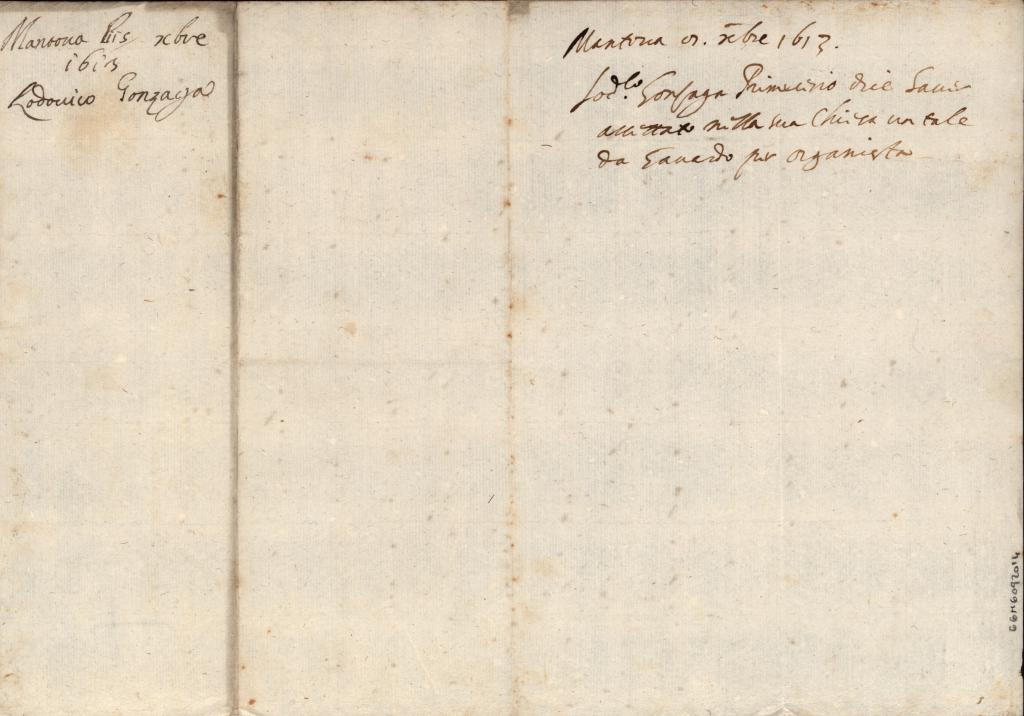 Mantoua xbre
1613
Lodouico Gonzaga
Mantoua xbre 1613.
Lod.co Gonzaga Primicerio dice hauer
accettato nella sua Chiesa un tale
da Gauardo per organista
66M6092014